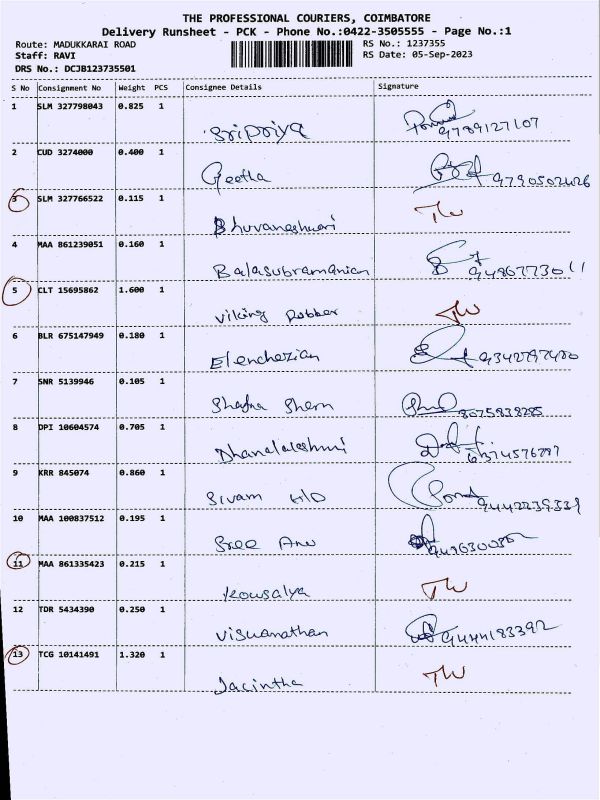 THE PROFESSIONAL COURIERS, COIMBATORE
Delivery Runsheet - PCK - Phone No.:0422-3505555 - Page No.:1
Route: MADUKKARAI ROAD RS No.: 1237355
Staff: RAVI RS Date: 05-Sep-2023
DRS No.: DCJB123735501
S No Consignment No Weight PCS Consignee Details Signature
1 SLM 327798043 0.825 1
Sripriya 9789127107
2 CUD 3274000 0.400 1
Geetha
3 SLM 327766522 0.115 1 TW
Bhuvaneshwari
4 MAA 861239051 0.160 1
Balasubramanian
5 CLT 15695862 1.600 1
Viking Robber TW
6 BLR 675147949 0.180 1
Elenchezian
7 SNR 5139946 0.105 1
8075838285
8 DPI 10604574 0.705 1
Dhanalakshmi 6374576297
9 KRR 845074 0.860 1
Sivam H/O 9442239339
10 MAA 100837512 0.195 1
Sree Anu
11 MAA 861335423 0.215 1 TW
Kousalya
12 TDR 5434390 0.250 1
Viswanathan 9444183392
13 TCG 10141491 1.320 1
Jacintha TW